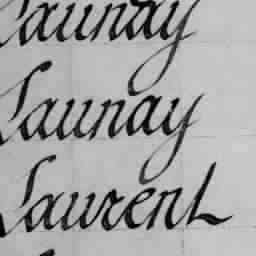 Launay
Launay
Laurent